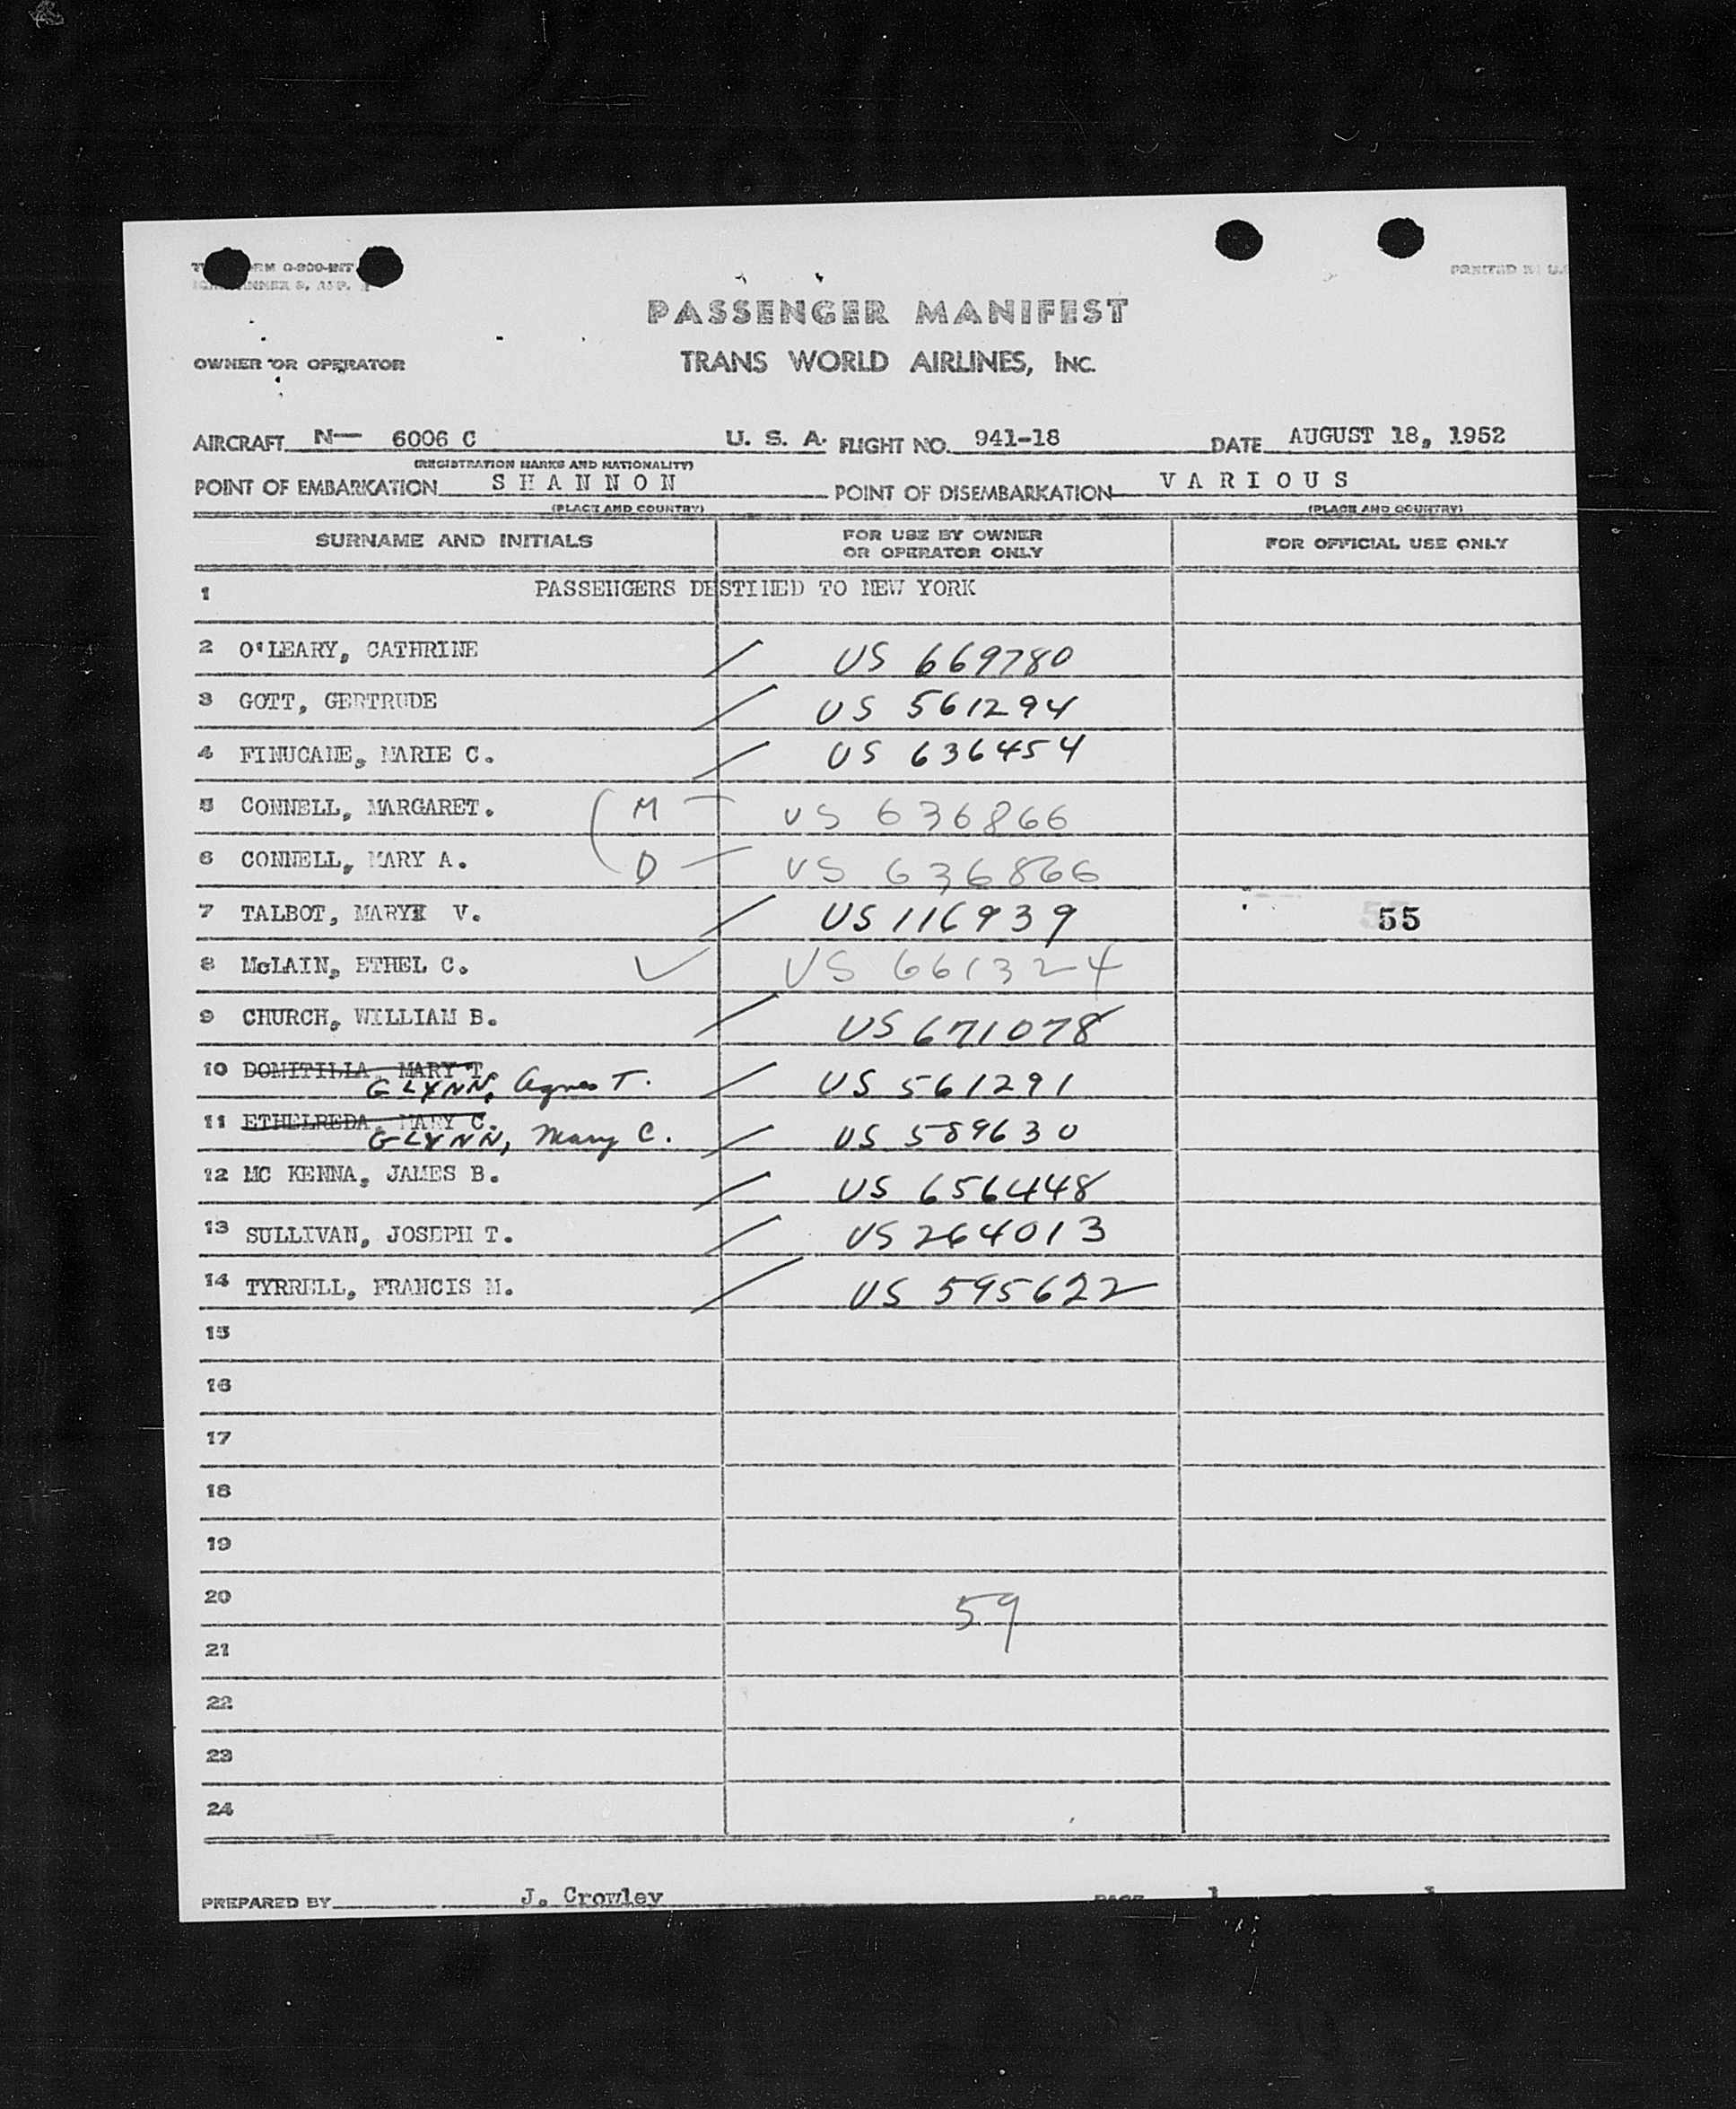 PRINTED IN U.S
PASSENGER MANIFEST
OWNER OR OPERATOR TRANS WORLD AIRLINES, INC.
AIRCRAFT N— 6006 C U. S. A. FLIGHT NO. 941-18 DATE AUGUST 18, 1952
(REGISTRATION MARKS AND NATIONALITY)
POINT OF EMBARKATION S H A N N O N POINT OF DISEMBARKATION V A R I O U S
(PLACE AND COUNTRY) (PLACE AND COUNTRY)
SURNAME AND INITIALS FOR USE BY OWNER OR OPERATOR ONLY FOR OFFICIAL USE ONLY
1 PASSENGERS DESTINED TO NEW YORK
2 O'LEARY, CATHRINE / US 669780
3 GOTT, GERTRUDE / US 561294
4 FINUCANE, MARIE C. / US 636454
5 CONNELL, MARGARET. ( M — US 636866
6 CONNELL, MARY A. D — US 636866
7 TALBOT, MARYX V. / US 116939 55
8 McLAIN, ETHEL C. ✓ US 661324
9 CHURCH, WILLIAM B. / US 671078
10 DOMITILLA, MARY T.
GLYNN, Agnes T. / US 561291
11 ETHELREDA, MARY C.
GLYNN, Mary C. / US 589630
12 MC KENNA, JAMES B. / US 656448
13 SULLIVAN, JOSEPH T. / US 264013
14 TYRRELL, FRANCIS M. / US 595622
15
16
17
18
19
20 59
21
22
23
24
PREPARED BY J. Crowley PAGE 1 OF 1